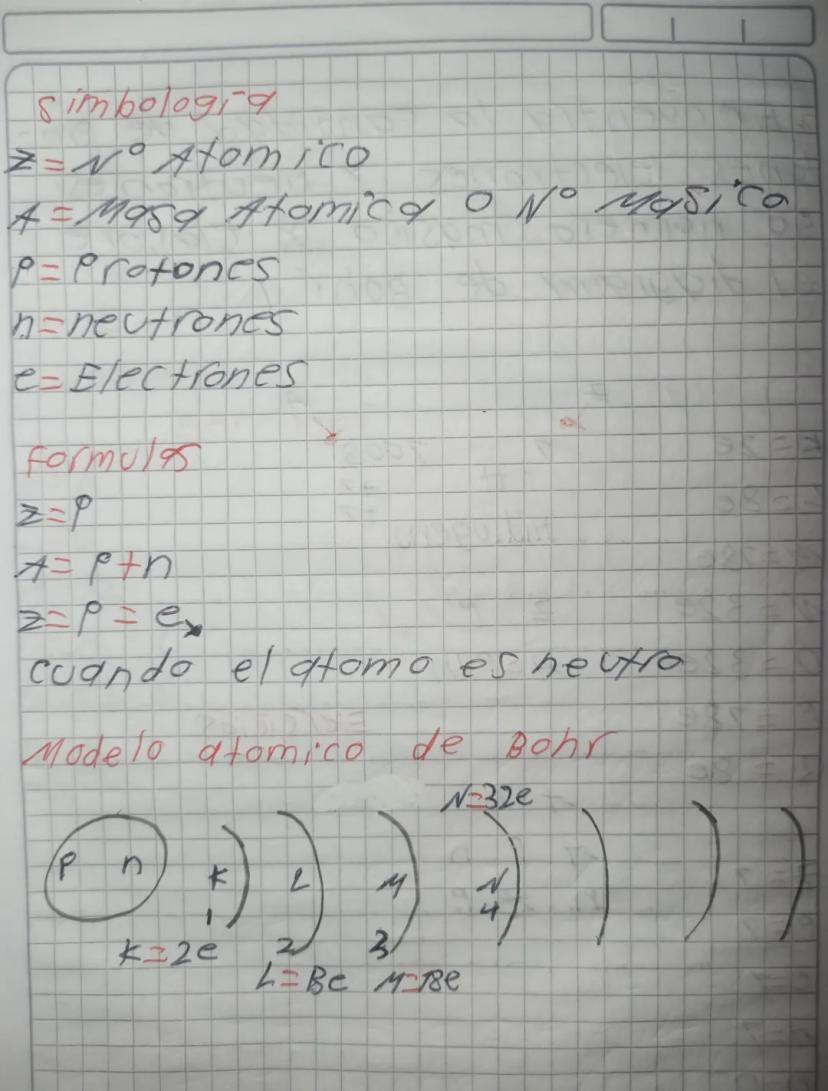 simbología
Z = N° Atomico
A = Masa Atomica O N° Masico
P = Protones
n = neutrones
e = Electrones
Formulas
Z = P
A = P + n
Z = P = e
cuando el atomo es neutro
Modelo atomico de Bohr
N = 32e
P n K L M N
1 2 3 4
K = 2e
L = 8e M = 18e